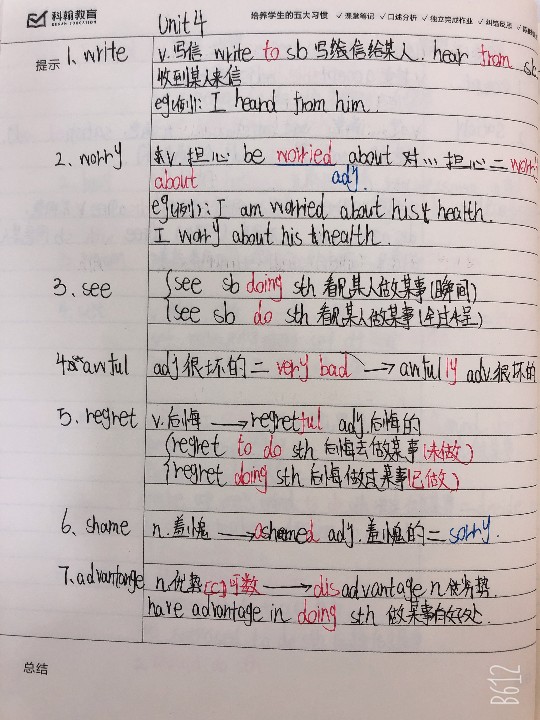 科翰教育
培养学生的五大习惯 ✓课堂笔记 ✓口述分析 ✓独立完成作业 ✓纠错反思
Unit 4
提示
1、write v.写信 write to sb 写给信给某人. hear from sb
收到某人来信
eg(例): I heard from him.
2、worry v.担心 be worried about 对…担心=worry
about adj.
eg(例): I am worried about his health.
I worry about his health.
3、see see sb doing sth 看见某人做某事(瞬间)
see sb do sth 看见某人做某事(全过程)
4、awful adj很坏的=very bad → awfully adv.很坏的
5、regret v.后悔 → regretful adj.后悔的
regret to do sth 后悔去做某事(未做)
regret doing sth 后悔做过某事(已做)
6、shame n.羞愧 → ashamed adj.羞愧的=sorry.
7、advantange n优势[C]可数 → disadvantage n劣势.
have advantage in doing sth 做某事有好处.
总结
B612